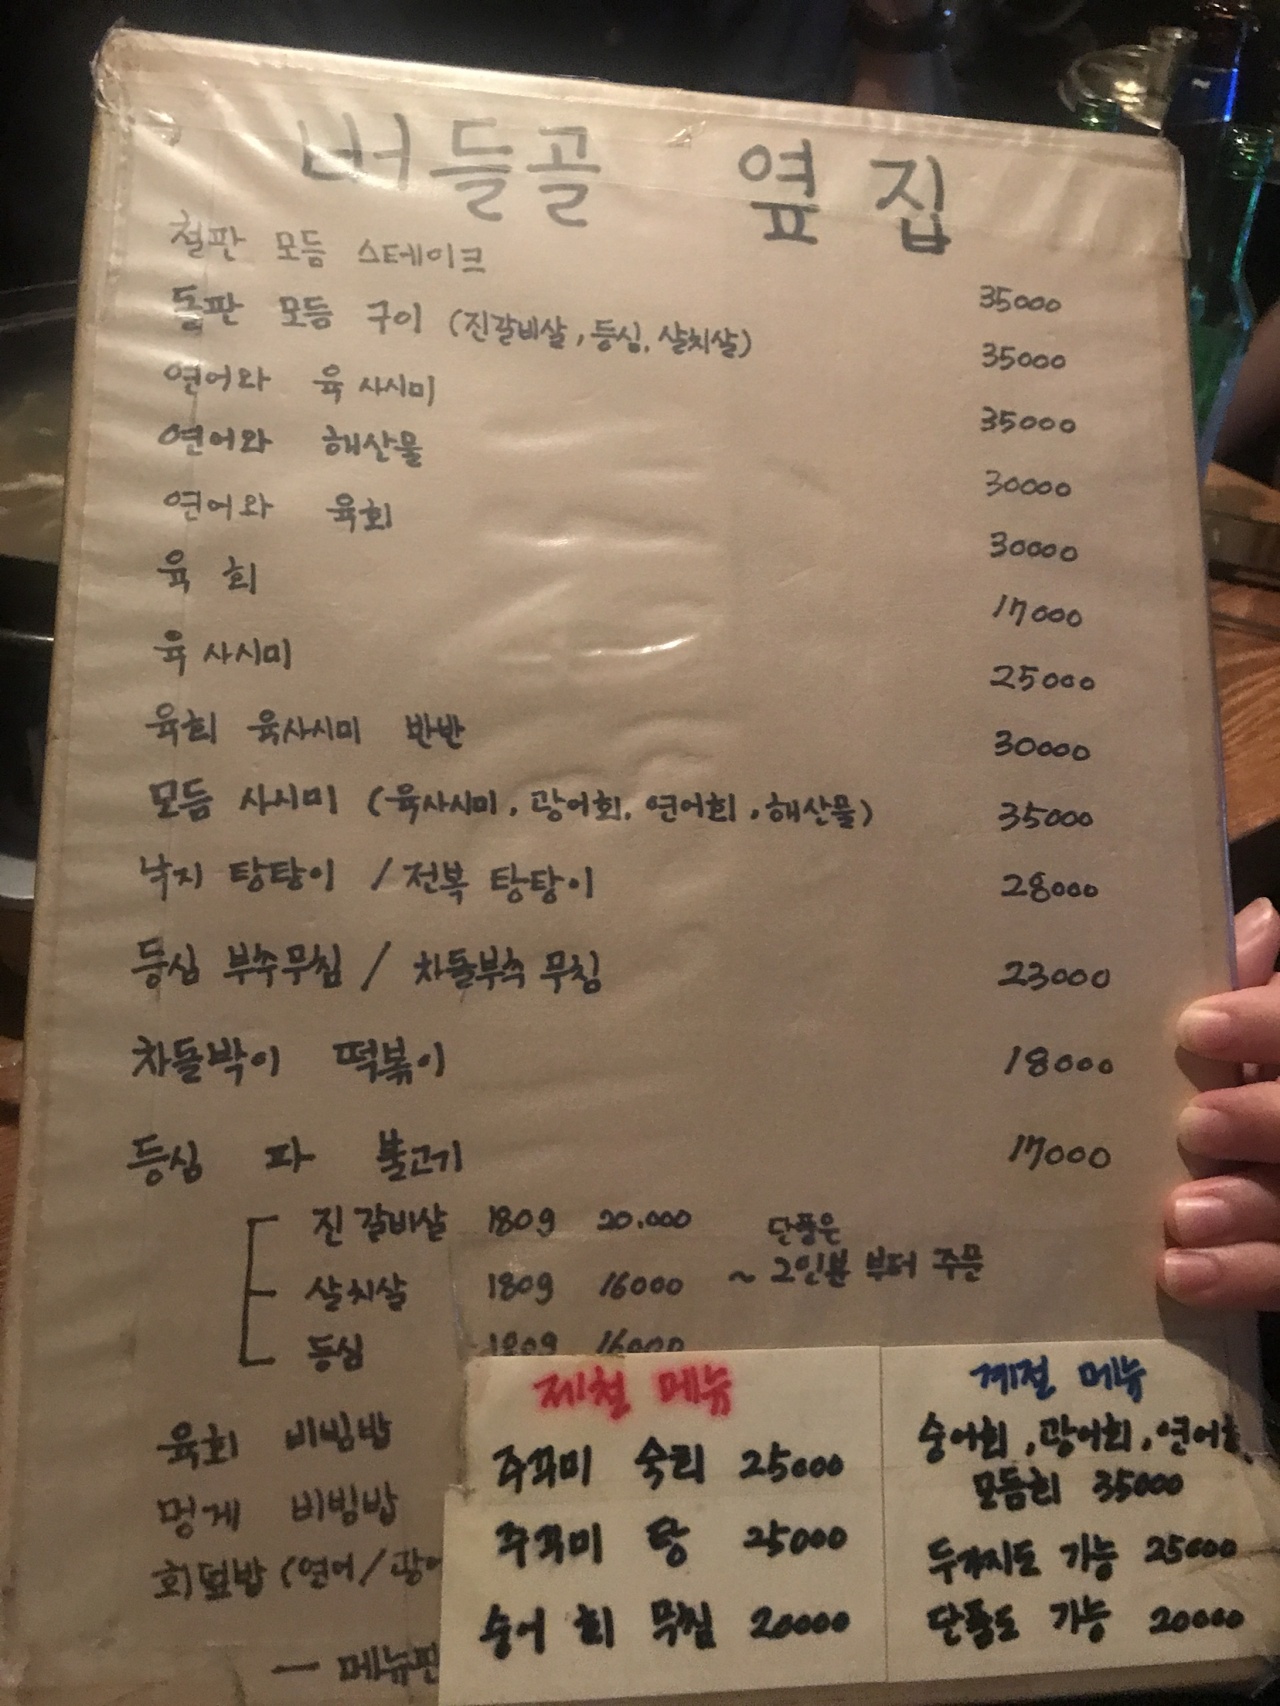 버들골 옆집
철판 모듬 스테이크 35000
돌판 모듬 구이 (진갈비살, 등심, 살치살) 35000
연어와 육사시미 35000
연어와 해산물 30000
연어와 육회 30000
육회 17000
육사시미 25000
육회 육사시미 반반 30000
모듬 사시미 (육사시미, 광어회, 연어회, 해산물) 35000
낙지 탕탕이 / 전복 탕탕이 28000
등심 부추무침 / 차돌부추 무침 23000
차돌박이 떡볶이 18000
등심 파 불고기 17000
진갈비살 180g 20.000
살치살 180g 16000
등심 180g 16000
단품은
~ 2인분 부터 주문
육회 비빔밥
멍게 비빔밥
회덮밥 (연어/광어
— 메뉴판
제철 메뉴
쭈꾸미 숙회 25000
쭈꾸미 탕 25000
숭어 회 무침 20000
계절 메뉴
숭어회, 광어회, 연어회
모듬회 35000
두가지도 가능 25000
단품도 가능 20000